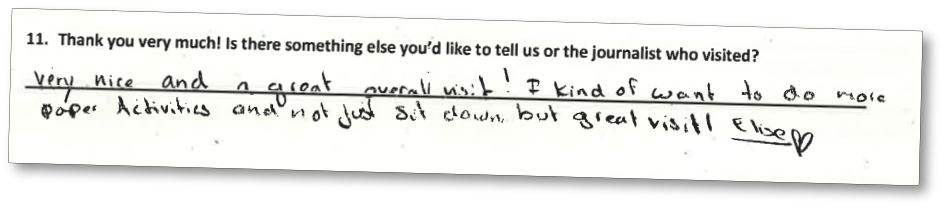 11. Thank you very much! Is there something else you'd like to tell us or the journalist who visited?
Very nice and a great overall visit! I kind of want to do more
paper Activities and not just sit down, but great visit! Elise♡